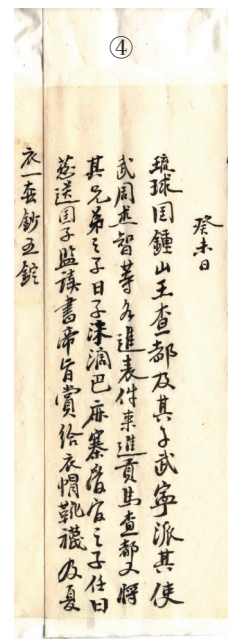 ④
癸未日
琉球国鍾山王查都及其子武寧派其使
武周患智等各進表件来進貢馬查都又將
其兄弟之子日子渁濶巴麻寨管官之子仕曰
葱送国子監读書帝旨賞給衣帽靴襪及夏
衣一套鈔五錠